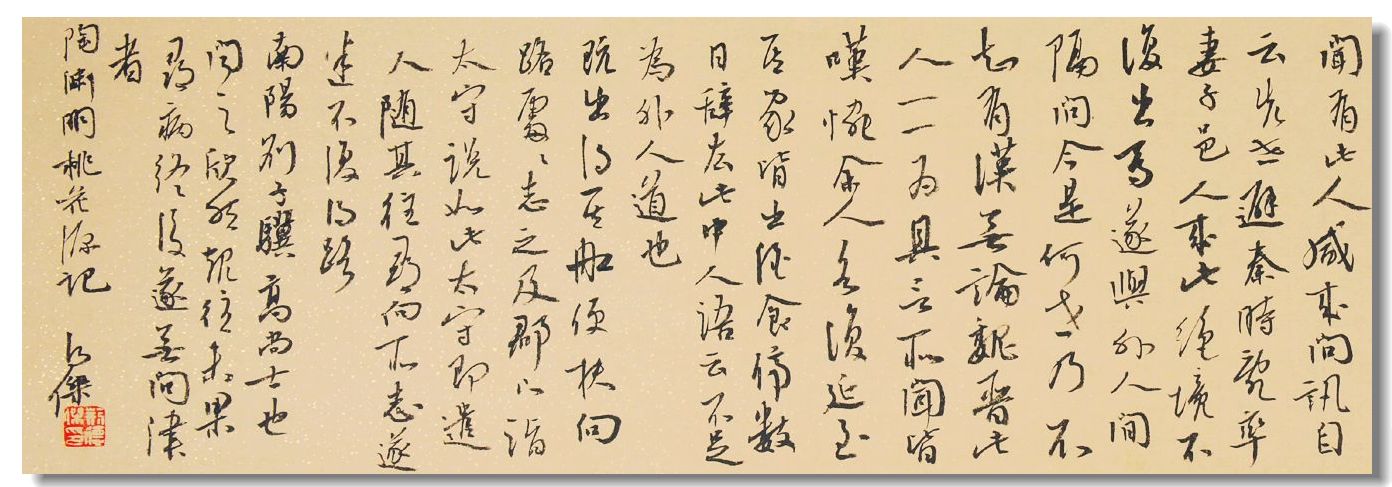 聞有此人咸來問訊自
云先世避秦時亂率
妻子邑人來此絕境不
復出焉遂與外人間
隔問今是何世乃不
知有漢無論魏晉此
人一一為具言所聞皆
嘆惋余人各復延至
其家皆出酒食停數
日辭去此中人語云不足
為外人道也
既出得其船便扶向
路處〻志之及郡下詣
太守說如此太守即遣
人隨其往尋向所志遂
迷不復得路
南陽劉子驥高尚士也
聞之欣然規往未果
尋病終後遂無問津
者
陶淵明桃花源記
傑